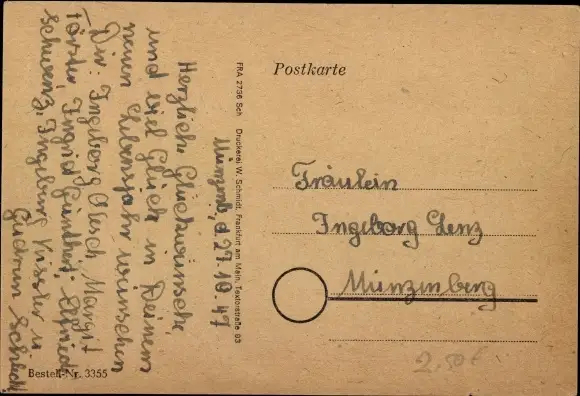 Münzenb, d 27.10.47
Herzliche Glückwünsche
und viel Glück in Deinem
neuen Lebensjahr wünschen
Dir: Ingeborg Margit
Förster, Ingrid Günther, Elfriede
Schwenz, Ingeburg u
Gudrun
FRA 2736 Sch Druckerei W. Schmidt, Frankfurt am Main, Textorstraße 63
Postkarte
Fräulein
Ingeborg Lenz
Münzenberg
2.50 €
Bestell-Nr. 3355